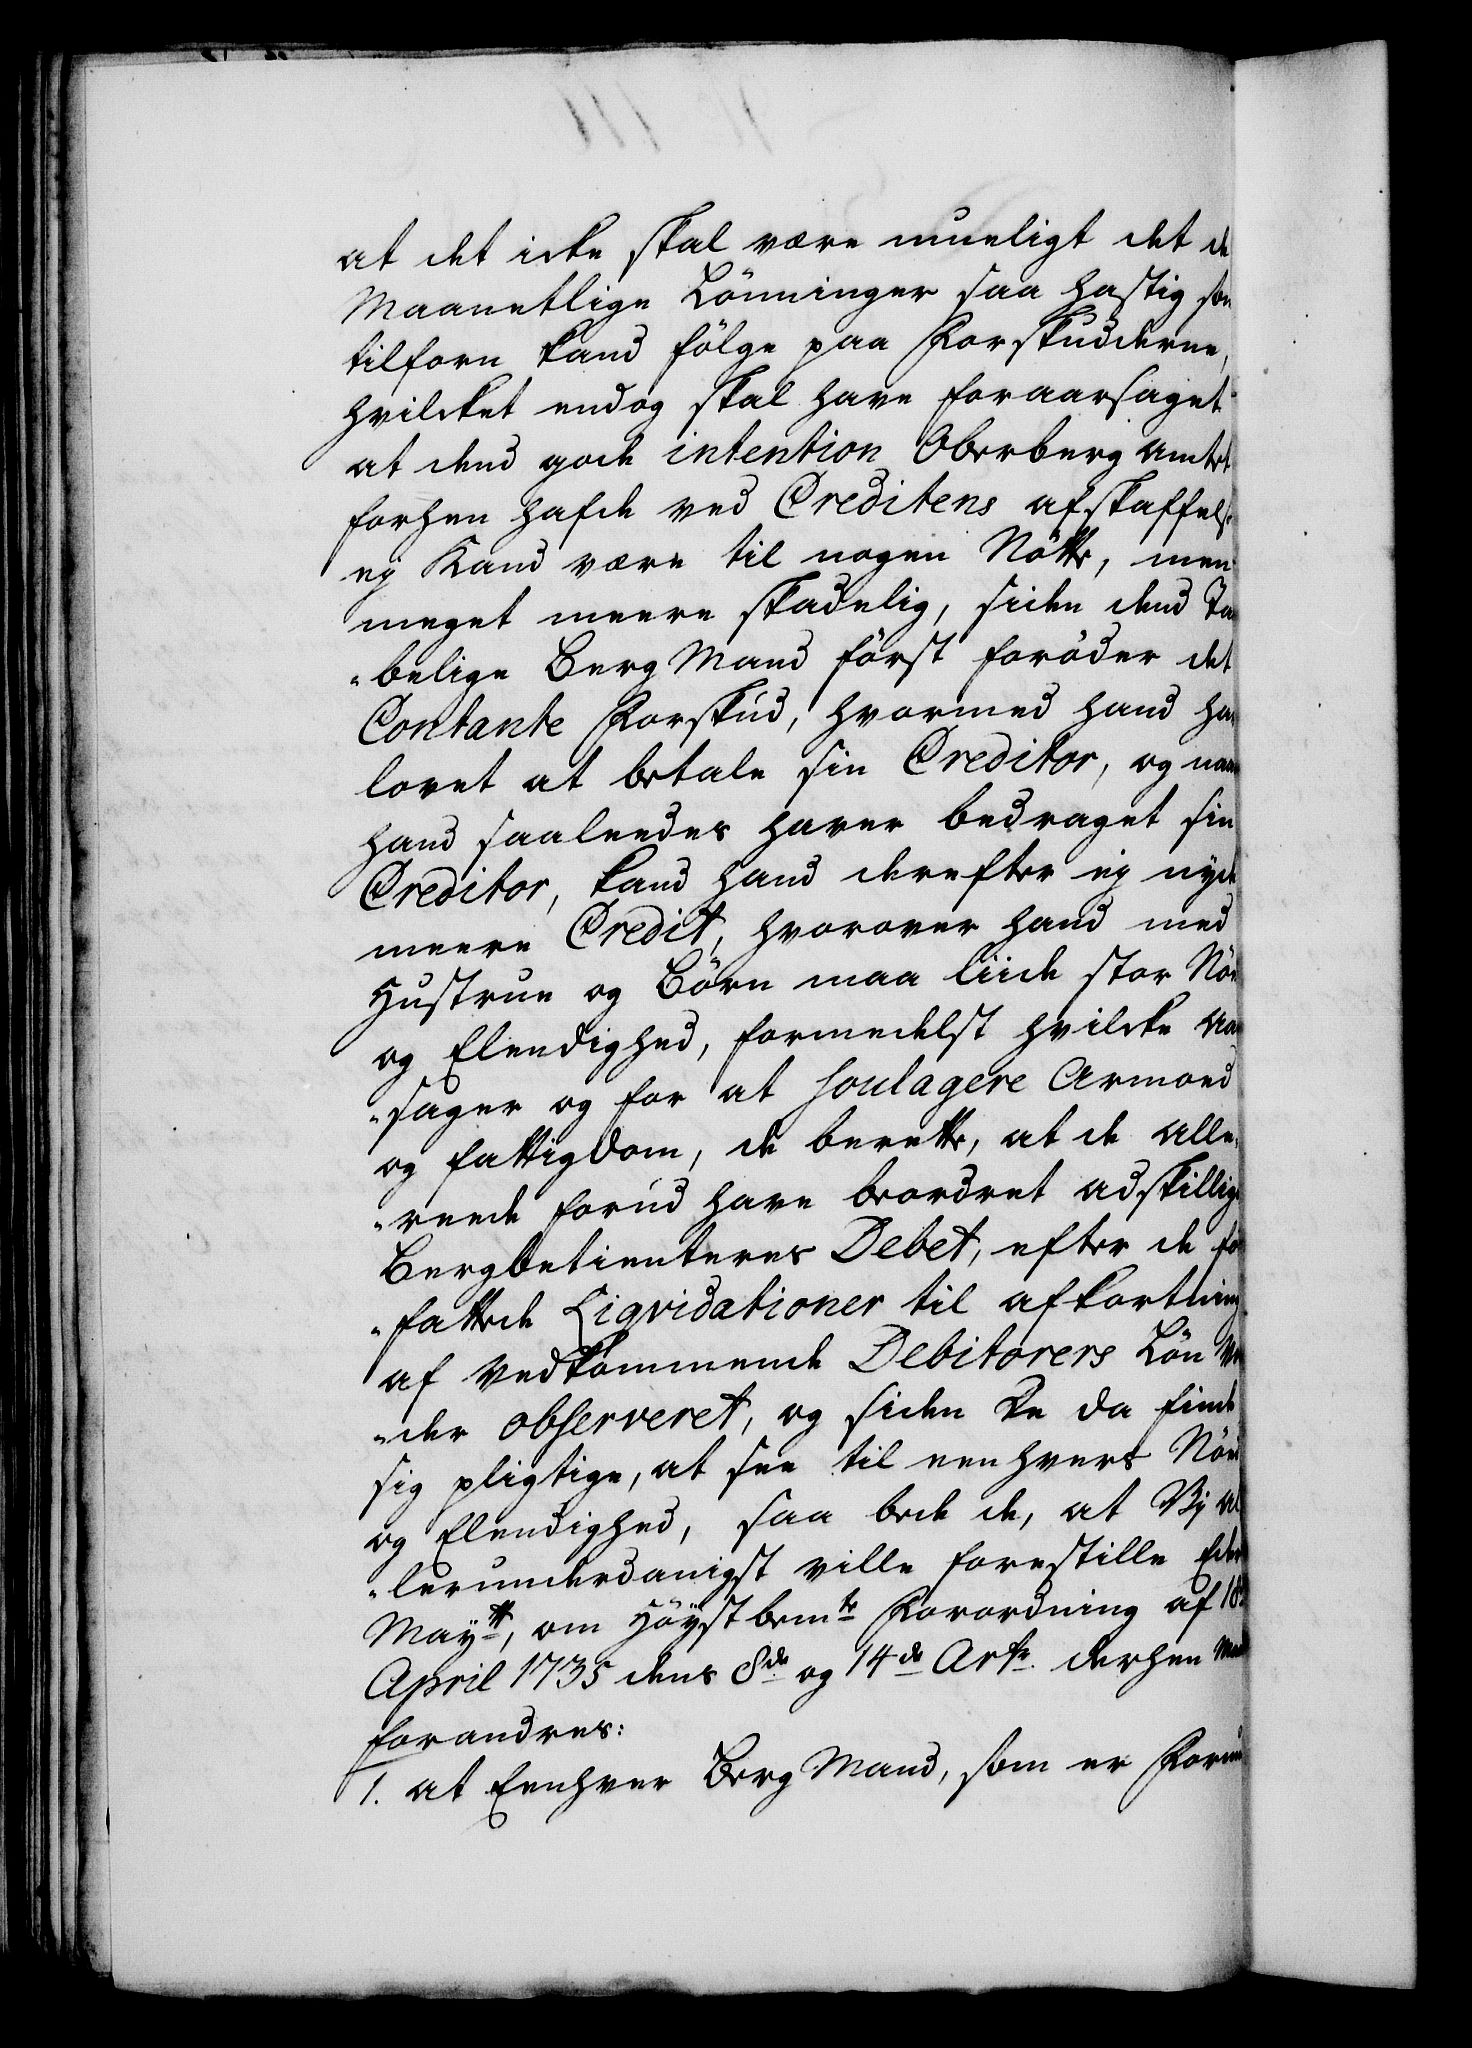 at det icke skal være mueligt det de
Maanetlige Lönninger saa hastig som
tilforn kand fölge paa Forskudderne,
hvilcket endog skal have foraarsaget
at dend gode intention Oberberg Amtet
forhen hafde ved Creditens afskaffelse
ej Kand være til nogen Nötte, men
meget meere skadelig, siden dend Ta
-belige Berg Mand först foröder det
Contante Forskud, hvormed hand har
lovet at betale sin Creditor, og naar
hand saaleedes haver bedraget sin
Creditor, kand hand derefter ej nyde
meere Credit, hvorover hand med
Hustrue og Börn maa liide stor Nöd
og Elendighed, formedelst hvilcke Aar
-sager og for at soulagere Armoed
og fattigdom, de berette, at de alle-
-reede forud have beordret adskillige
Bergbetienteres Debet, efter de for
-fattede Liqvidationer til afkortning
af vedkommende Debitorers Lön
-der observeret, og siden De da finde
sig pligtige, at see til eenhvers Nöd
og Elendighed, saa bede de, at Vj al
-lerunderdanigst ville forestille Eders
Mayᵗᵗ, om Höystbemᵗᵉ Forordning af 18de
April 1735 dens 8de og 14de Artr. derhen maatte
forandres:
1. at Eenhver Berg Mand, som er